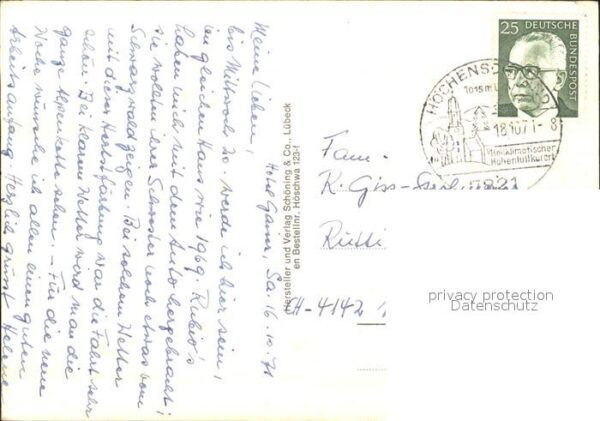 Hotel Gaiser, Sa. 16.10.71
Meine Lieben,
bis Mittwoch 20. werde ich hier sein,
im gleichen Haus wie 1969.
haben mich mit dem Auto hergebracht;
sie wollten ihrer Schwester noch etwas vom
Schwarzwald zeigen. Bei solchem Wetter
mit dieser Herbstfärbung war die Fahrt sehr
schön. Bei klarem Wetter wird man die
ganze Alpenkette sehen. – Für die neue
Woche wünsche ich allen einen guten
Arbeitsanfang. Herzlich grüsst Helene
Hersteller und Verlag Schöning & Co., Lübeck
en Bestellnr. Höschwa 123-f
25 DEUTSCHE BUNDESPOST
HÖCHENSCHWAND
1015 m ü
18.10.71 - 8
Heilklimatischer
Höhenluftkurort
7821
Fam.
K. Giss-
Rütti
CH-4142
privacy protection
Datenschutz